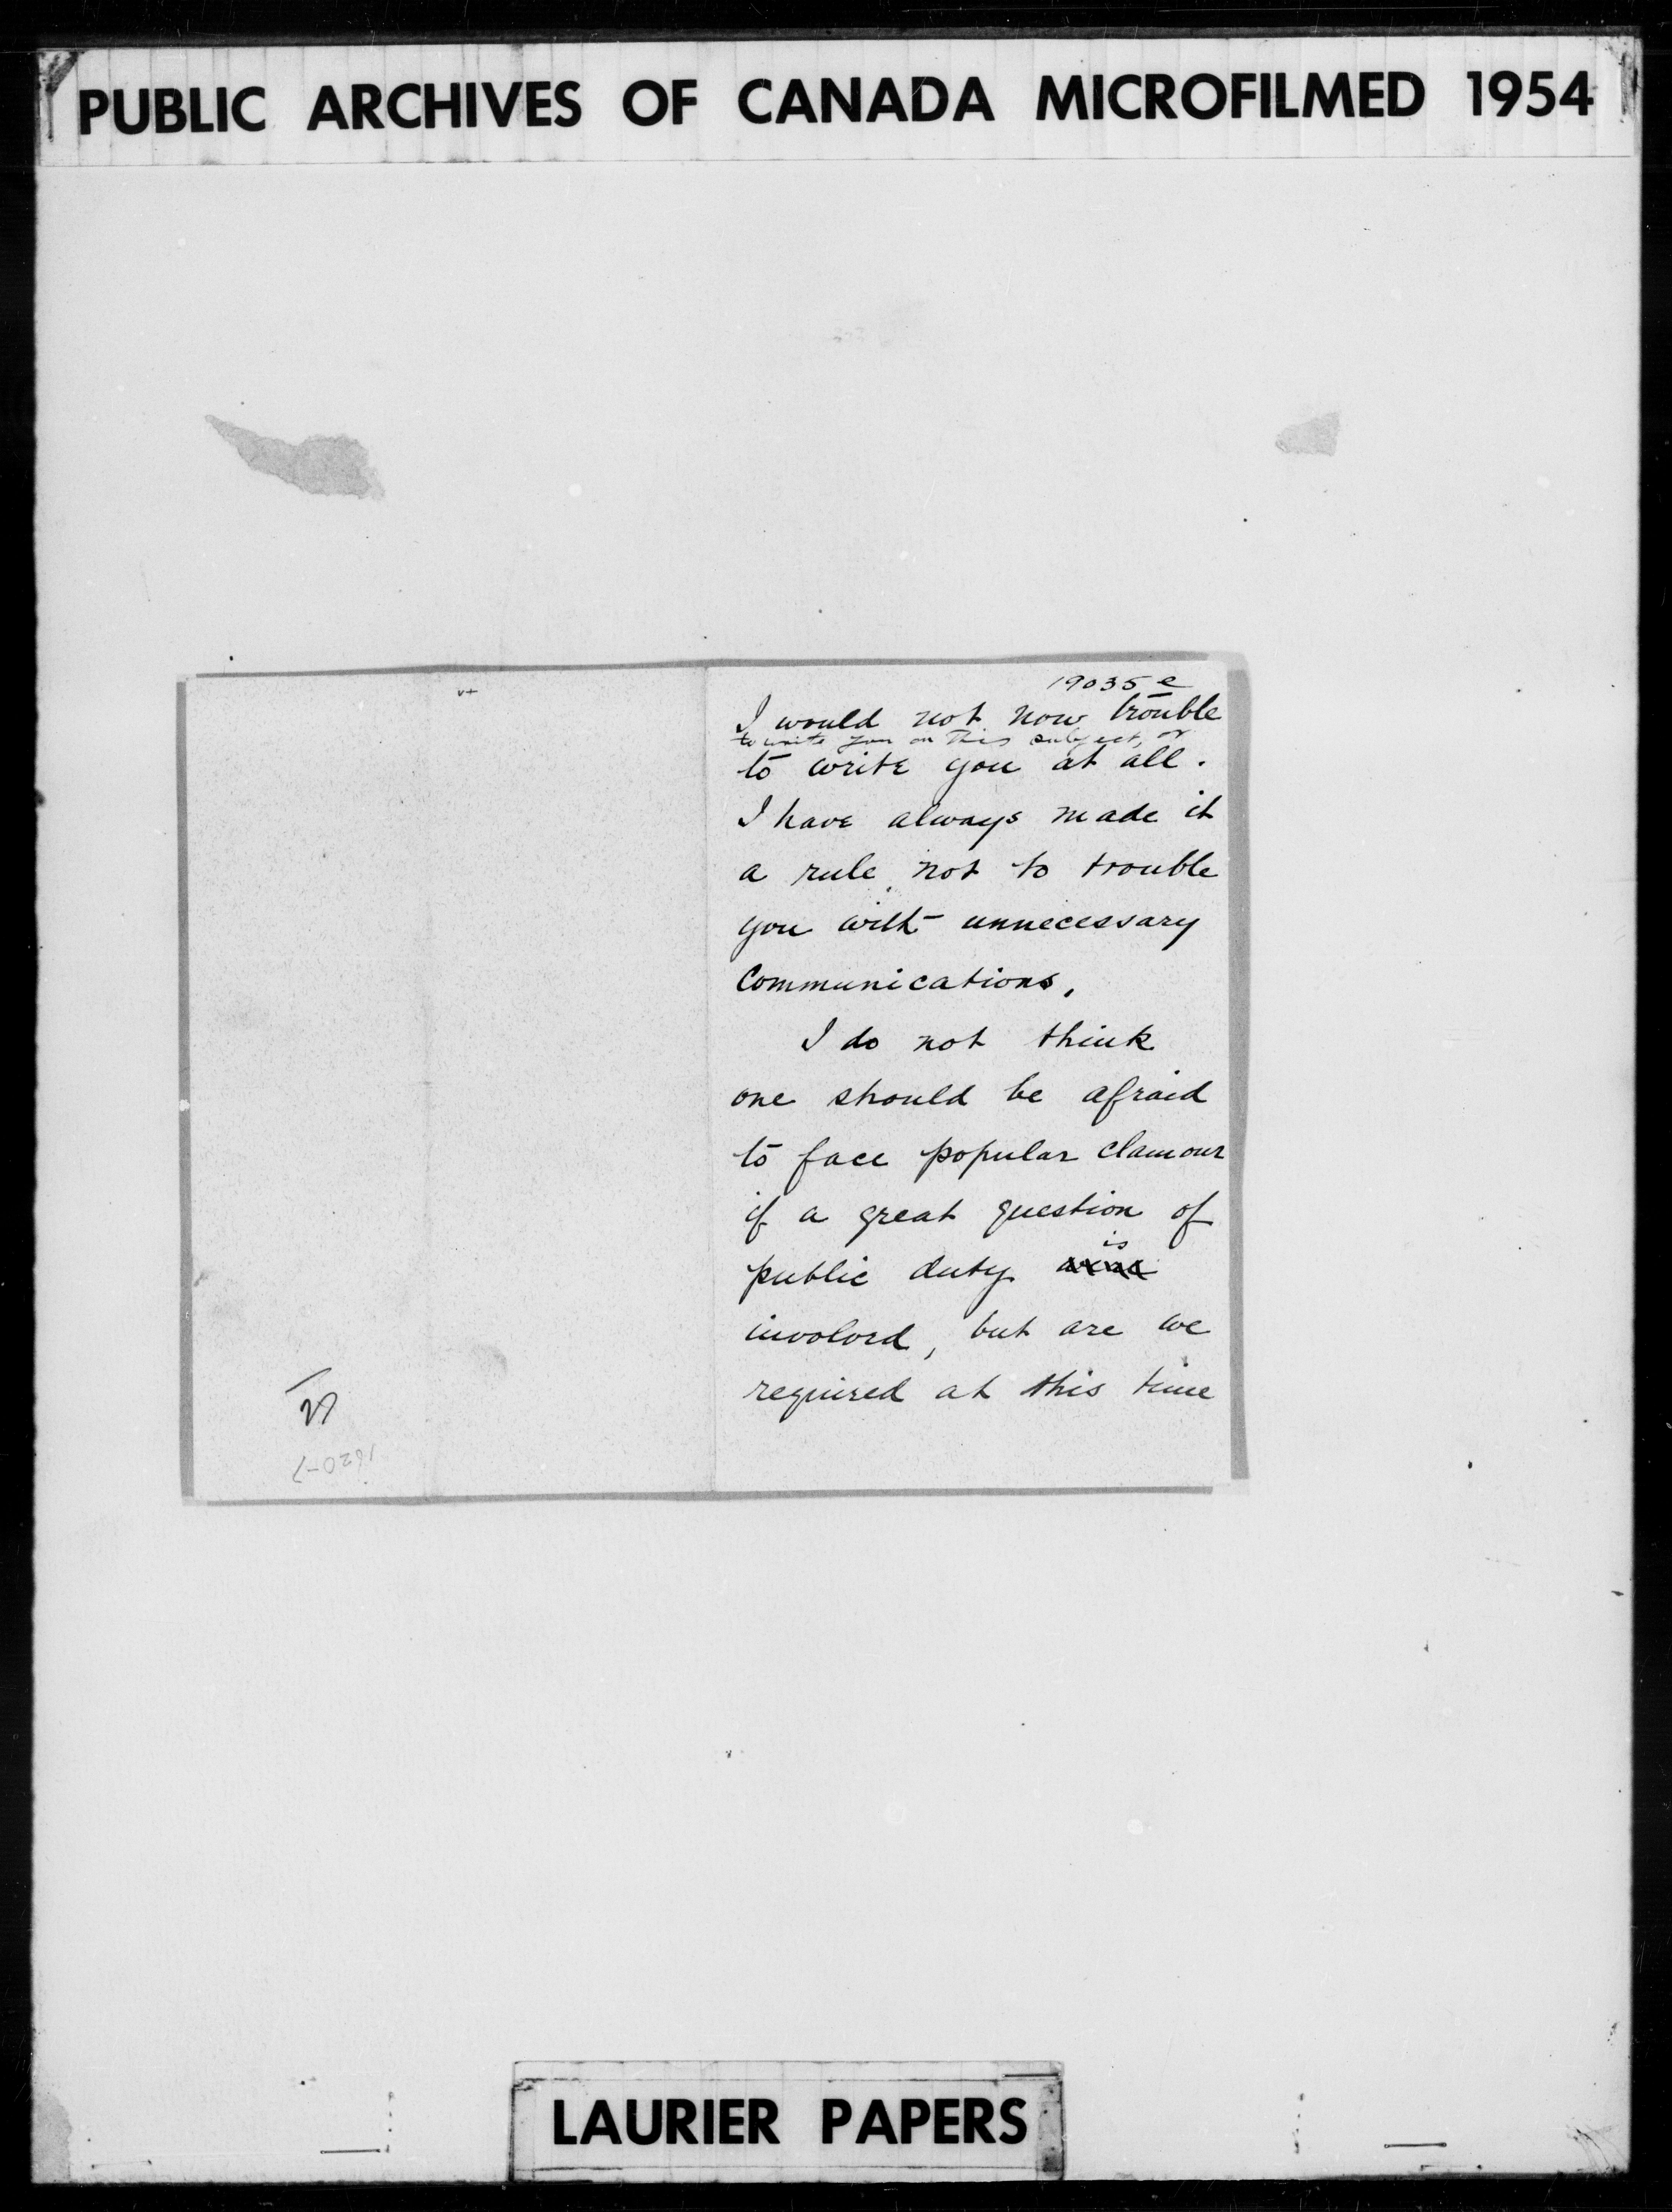 PUBLIC ARCHIVES OF CANADA MICROFILMED 1954
19035 e
I would not now trouble
to write you on this subject, or
to write you at all.
I have always made it
a rule not to trouble
you with unnecessary
Communications.
I do not think
one should be afraid
to face popular clamour
if a great question of
is
public duty
involved, but are we
required at this time
1620-7
LAURIER PAPERS